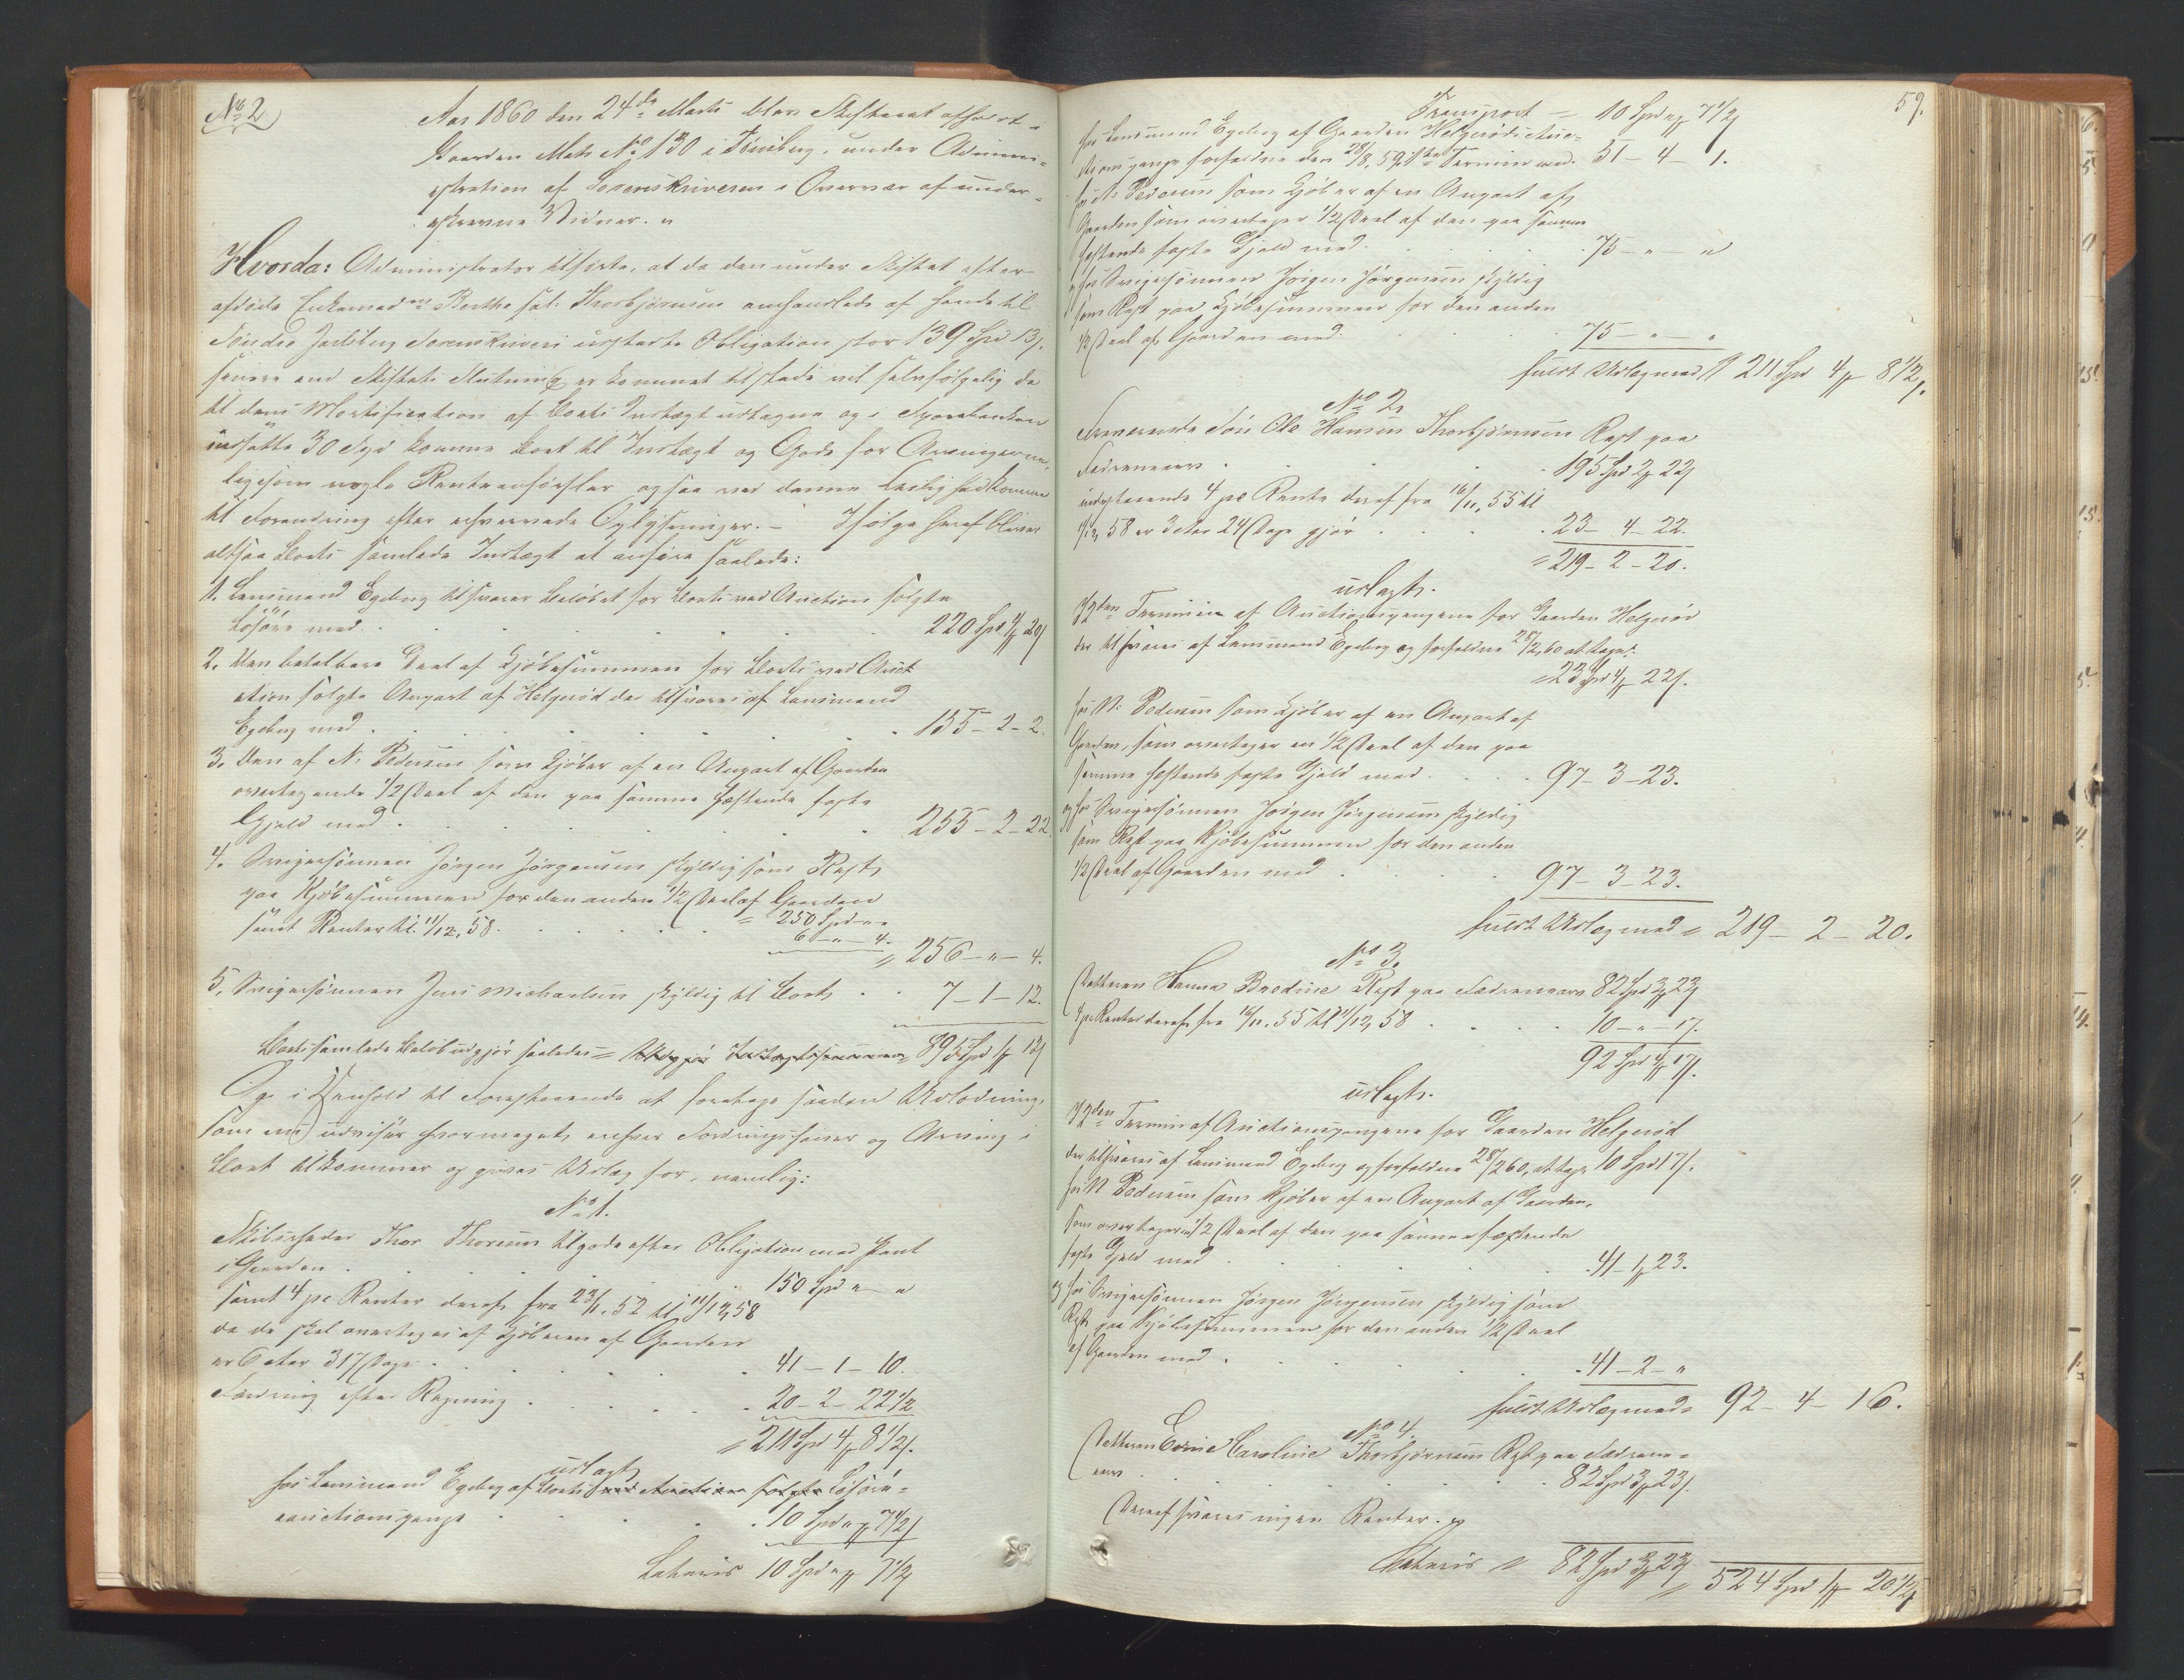 No 2
Aar 1860 den 24de Marts blev Skifteret afholdt i
Gaarden Matr No 130 i Tönsberg, under Admini-
stration af Sorenskriveren i Overvær af under-
skrevne Vidner. "
Hvorda: Administrator tilförte, at da den under Skiftet efter
afdöde Enkemad.me Berthe sal. Thorbjörnsen omhandlede af hende til
Söndre Jarlsberg Sorenskriveri udstædte Obligation stor 139 Spd 13 s.
senere end Skiftets Slutning er kommet tilstede vil selvfölgelig de
til dens Mortification af Boets Indtægt udtagne og i Sparebanken
indsatte 30 Spd komme Boet til Indtægt og Gode for Arvingerne,
ligesom nogle Renteansörsler ogsaa ved denne Leilighed komme
til Forandring efter erhvervede Oplysninger. – Ifölge heraf bliver
altsaa Boets samlede Indtægt at anföre saaledes:
1. Lensmand Egeberg tilsvarer Belöbet for Boets ved Auction solgte
Lösöre med . . . 220 Spd 4 # 20 s
2. Den betalbare Deel af Kjöbesummen for Boets ved Auct
ction solgte Anpart af Helgeröd der tilsvares af Lensmand
Egeberg med . . . 155 – 2 – 2.
3. Den af N: Pedersen som Kjöber af en Anpart af Gaarden
overtagende 1/2 Deel af den paa samme hæftende faste
Gjæld med . . . 255 – 2 – 22.
4. Svigersönnen Jörgen Jörgensen skyldig som Rest
paa Kjöbesummen for den anden 1/2 Deel af Gaarden
= 250 Spd " "
samt Renter til 11/12, 58 . . . 6 – " – 4.
= 256 – " – 4.
5. Svigersönnen Jens Michaelsen skyldig til Boet . . 7 – 1 – 12.
Boets samlede Belöb udgjör saaledes = Udgjör Indtægtssummen = 895 Spd 1 # 12 s
Og i Henhold til Forestaaende at foretage saadan Udlodning,
som nu udviser hvormeget enhver Fordringshaver og Arving i
Boet tilkommer og gives Udlæg for, nemlig:
No 1.
Skibsreder Thor Thoresen tilgode efter Obligation med Pant
i Gaarden . . . 150 Spd " – "
samt 4 pc Renter deraf fra 23/1, 52 til 11/12, 58
da de skal overtages af Kjöberen af Gaarden
er 6 Aar 317 Dage . . . 41 – 1 – 10.
Fordring efter Regning . . . 20 – 2 – 22 1/2
= 211 Spd 4 # 8 1/2 s.
udlagt
hos Lensmand Egeberg af Boets ved Auction solgte Lösöre-
auctionspenge . . . 10 Spd " # 7 1/2 s
Lateris 10 Spd " # 7 1/2 s
59.
Transport = 10 Spd " # 7 1/2 s
hos Lensmand Egeberg af Gaarden Helgeröds Auc-
tionspenge forfalden den 28/8, 59. 1ste Termin med . 51 – 4 – 1.
hos N: Pedersen som Kjöber af en Anpart af
Gaarden som overtager 1/2 Deel af den paa samme
heftende faste Gjæld med . . . 75 – " – "
og hos Svigersönnen Jörgen Jörgensen skyldig
som Rest paa Kjöbesummen for den anden
1/2 Deel af Gaarden med . . . 75 – " – "
fuldt Udlæg med = 211 Spd 4 # 8 1/2 s.
No 2
Fraværende Sön Ole Hansen Thorbjörnsen Rest paa
Fædrenearv . . . 195 Spd 2 # 22 s
indestaaende 4 pc Rente deraf fra 16/11, 55 til
11/12, 58 er 3 Aar 24 Dage gjör . . . 23 – 4 – 22.
= 219 – 2 – 20.
udlagt.
I 2den Termin af Auctionspengene for Gaarden Helgeröd
der tilsvares af Lensmand Egeberg og forfalden 28/2, 60 at tage:
= 23 Spd 4 # 22 s.
hos N: Pedersen som Kjöber af en Anpart af
Gaarden, som overtager en 1/2 Deel af den paa
samme heftende faste Gjæld med . . . 97 – 3 – 23.
og hos Svigersönnen Jörgen Jörgensen skyldig
som Rest paa Kjöbesummen for den anden
1/2 Deel af Gaarden med . . . 97 – 3 – 23.
fuldt Udlæg med = 219 – 2 – 20.
No 3.
Datteren Hanna Bredine Rest paa Fædrenearv 82 Spd 3 # 23 s
4 pc Renter deraf fra 16/11, 55 til 11/12, 58 . . . 10 – " – 17.
92 Spd 4 # 17 s.
udlagt.
I 2den Termin af Auctionspengene for Gaarden Helgeröd
der tilsvares af Lensmand Egeberg og forfalden 28/2 60, at tage 10 Spd 17 s.
hos N Pedersen som Kjöber af en Anpart af Gaarden,
som overtager en 1/2 Deel af den paa samme heftende
faste Gjæld med . . . 41 – 1 # 23.
og hos Svigersönnen Jörgen Jörgensen skyldig som
Rest paa Kjöbesummen for den anden 1/2 Deel
af Gaarden med . . . 41 – 2 – "
fuldt Udlæg med = 92 – 4 – 16.
No 4.
Datteren Caroline Thorbjörnsen Rest paa Fædrene-
arv . . . 82 Spd 3 # 23 s.
Deraf svares ingen Renter. "
Lateris = 82 Spd 3 # 23 s = 524 Spd 1 # 20 1/2 s